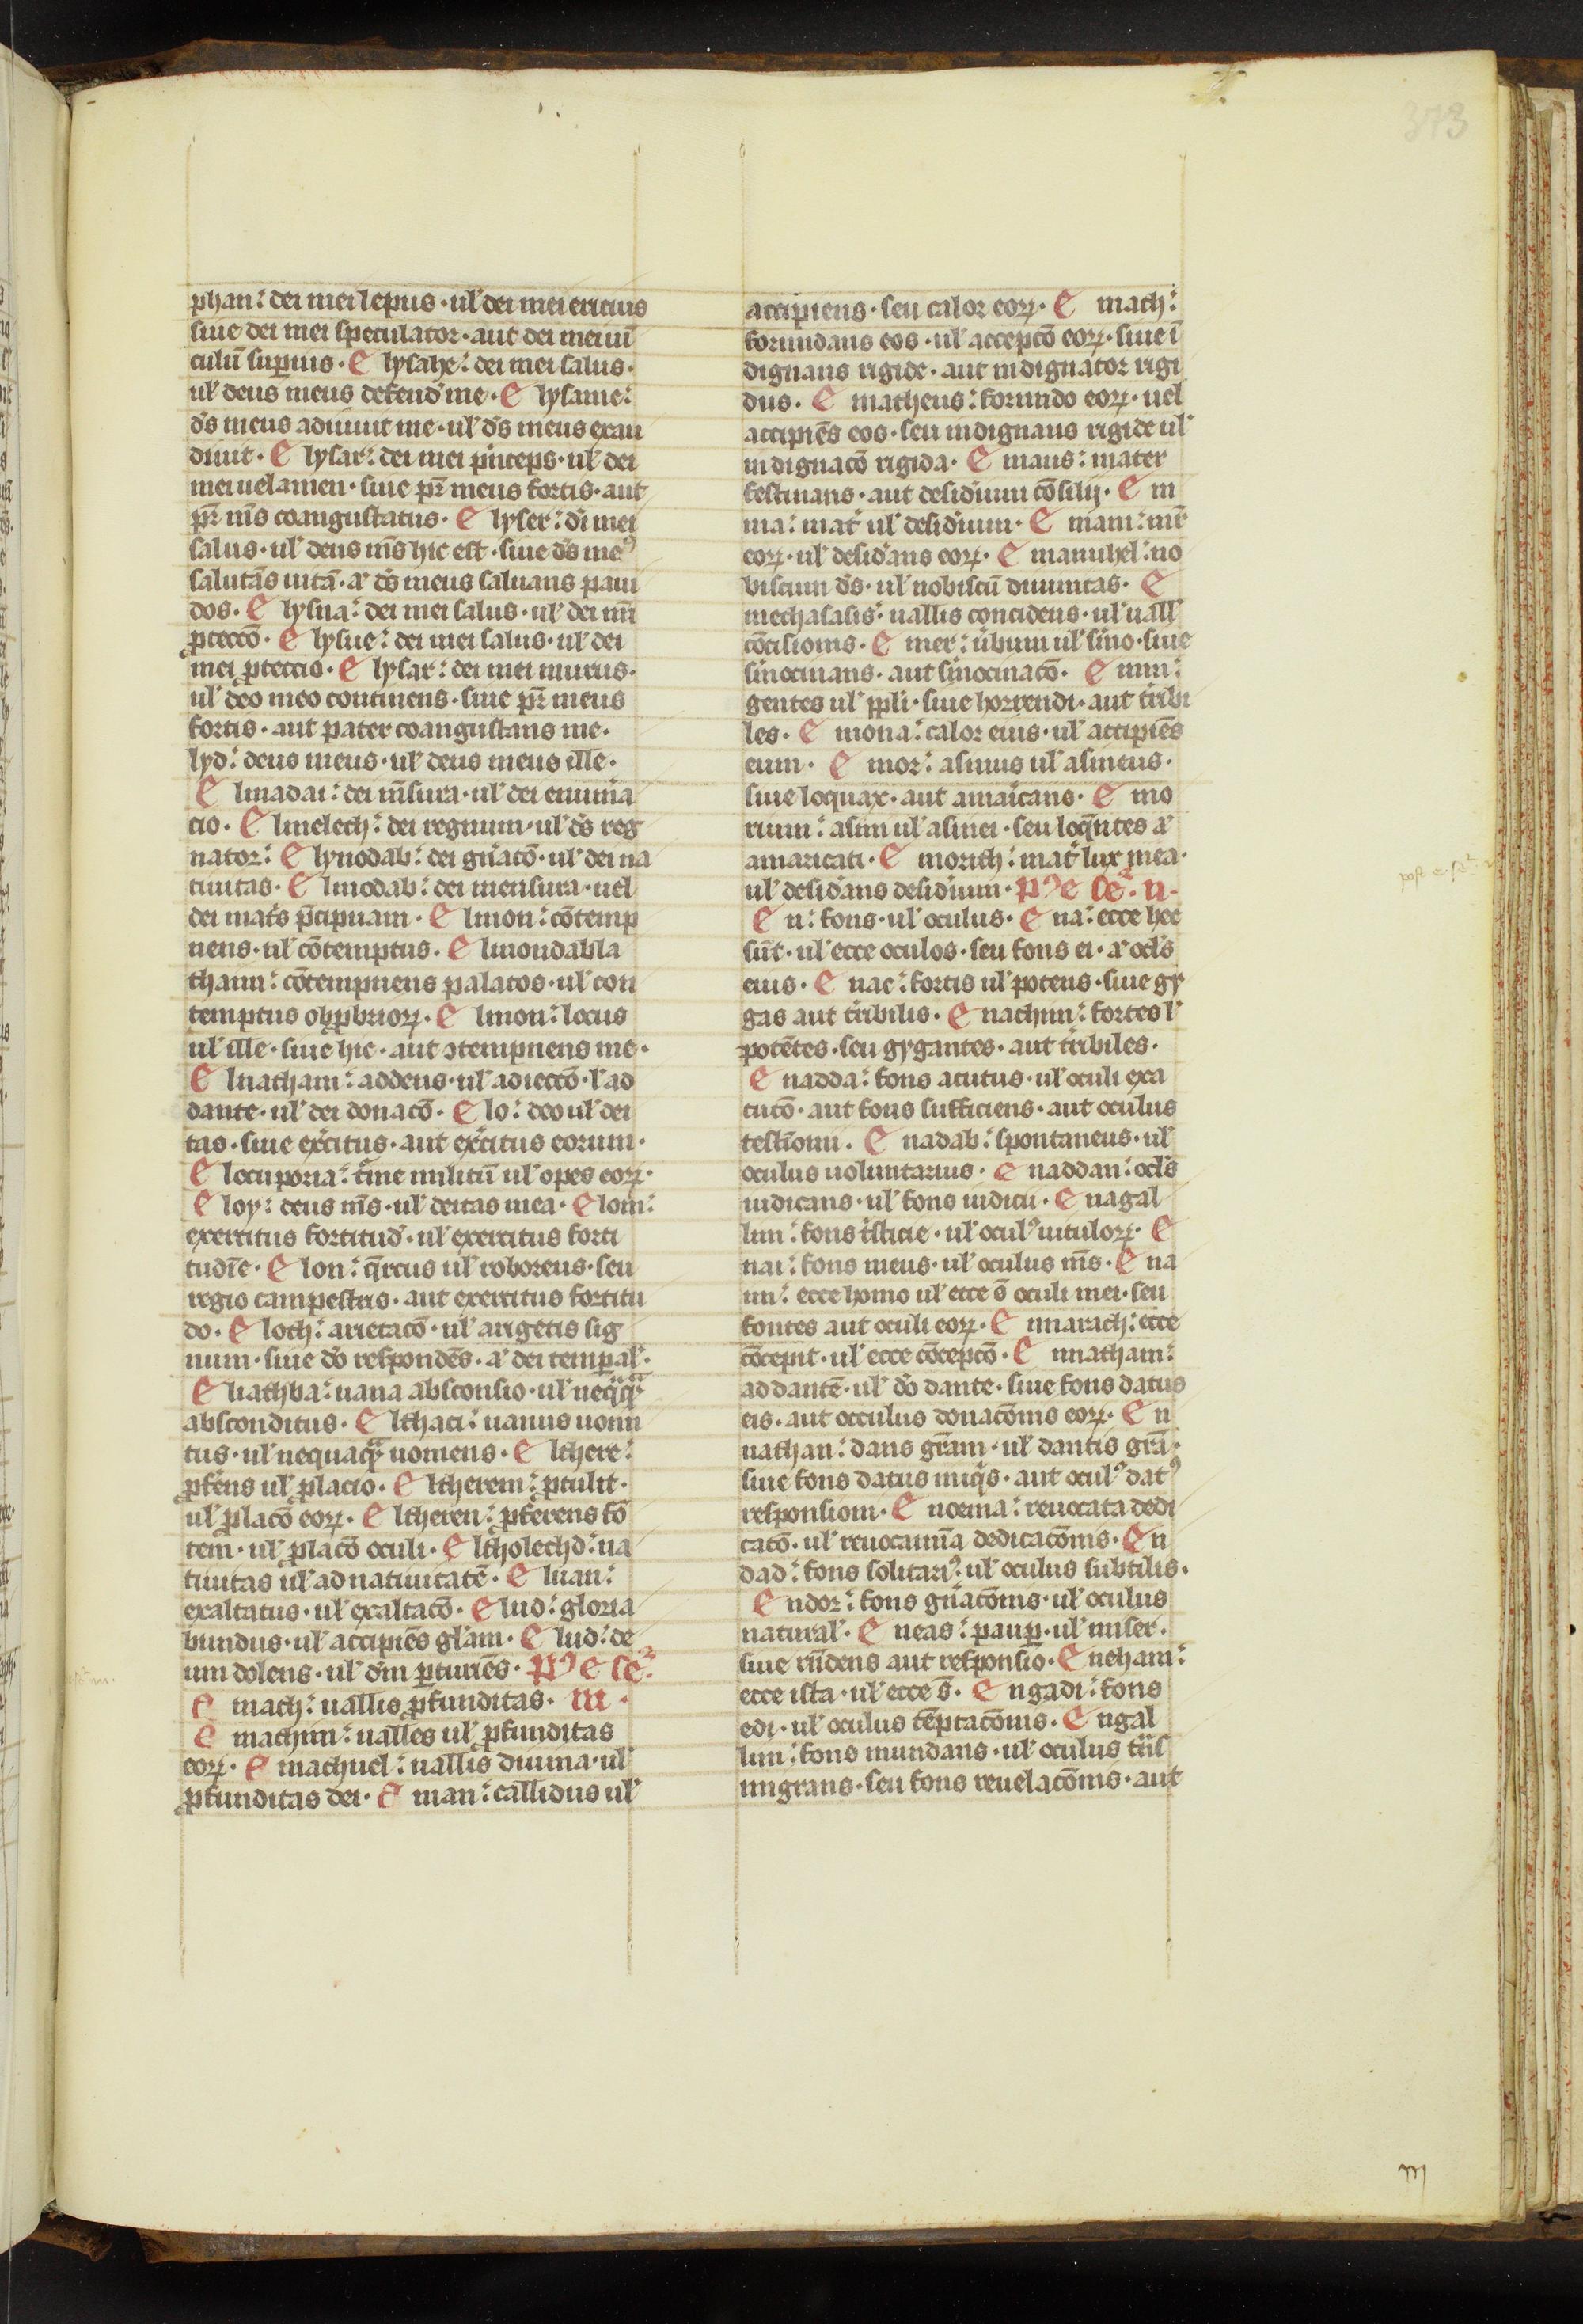 373
phan: dei mei lepus · ul' dei mei ericius
siue dei mei speculator · aut dei mei uī
culū supius · E lysabe: dei mei salus ·
ul' deus meus defend' me · E lysame:
d̄s meus adiuuit me · ul' d̄s meus exau
diuit · E lysar: dei mei p̄nceps · ul' dei
mei uelamen · siue pr̄ meus fortis · aut
pr̄ m̄s coangustatus · E lyser: d̄i mei
salus · ul' deus m̄s hic est · siue d̄s me9
salutās uitā · a' d̄s meus saluans paui
dos · E lysua: dei mei salus · ul' dei m̄i
ꝓteccō · E lysue: dei mei salus · ul' dei
mei ꝓteccio · E lysar: dei mei murus ·
ul' deo meo continens · siue pr̄ meus
fortis · aut pater coangustans me ·
lyd: deus meus · ul' deus meus ille ·
E lmadai: dei m̄sura · ul' dei enim̄a
cio · E lmelech: dei regnum · ul' d̄s reg
nator: E lynodab: dei gn̄acō · ul' dei na
tiuitas · E lmodab: dei mensura · uel
dei mat̄s p̄cipuam · E lmon: cōtemp
nens · ul' cōtemptus · E lmondabla
thaim: cōtempnens palatos · ul' con
temptus obꝓbrioꝝ · E lmon: locus
ul' ille · siue hic · aut ꝯtempnens me ·
E lnatham: addens · ul' adieccō · l' ad
dante · ul' dei donacō · E lo: deo ul' dei
tas · siue ex̄citus · aut ex̄citus eorum ·
E locuporia: t̄me militū ul' opes eoꝝ ·
E loy: deus m̄s · ul' deitas mea · E lom:
exercitus fortitud' · ul' exercitus forti
tudīe · E lon: q̄rcus ul' roboreus · seu
regio campestris · aut exercitus fortitu
do · E loth: arietacō · ul' arigetis sig
num · siue dō respondēs · a' dei tempal' ·
E liathba: uana absconsio · ul' neq̄q̄
absconditus · E lthaci: uanus uomi
tus · ul' nequaq̄ uomens · E lthere:
ꝓfēns ul' ꝓlacio · E ltherem: ꝓtulit ·
ul' ꝓlacō eoꝝ · E ltheren: ꝓferens fō
tem · ul' ꝓlacō oculi · E ltholechd: na
tiuitas ul' ad natiuitatē · E luan:
exaltatus · ul' exaltacō · E lud: gloria
bundus · ul' accipiēs gl'am · E lud: de
um dolens · ul' d̄m ꝑturiēs · P9 E se᷑
E mach: uallis ꝓfunditas · m ·
E machim: ualles ul' ꝓfunditas
eoꝝ · E machuel: uallis diuina · ul'
ꝓfunditas dei · E man: callidus ul'
accipiens · seu calor eoꝝ · E math:
formidans eos · ul' accepcō eoꝝ · siue ī
dignans rigide · aut indignator rigi
dus · E matheus: formido eoꝝ · uel
accipiēs eos · seu indignans rigide ul'
indignacō rigida · E maus: mater
festinans · aut desid'ium cōsilij · E m
ma: mat̄ ul' desid'ium · E mam: mr̄
eoꝝ · ul' desid'ans eoꝝ · E manuhel: no
biscum d̄s · ul' nobiscū diuinitas · E
mechasasis: uallis concidens · ul' uall'
cōcisionis · E mer: ūbum ul' s̄mo · siue
s̄mocinans · aut s̄mocinacō · E mim:
gentes ul' ppli · siue horrendi · aut t̄ribi
les · E mona: calor eius · ul' accipiēs
eum · E mor: asinus ul' asineus ·
siue loquax · aut amaricans · E mo
rium: asini ul' asinei · seu loq̄ntes a'
amaricati · E morith: mat̄ lux mea ·
ul' desid'ans desid'ium · P9 E se᷑ · n ·
E n: fons · ul' oculus · E na: ecce hec
sūt · ul' ecce oculos · seu fons ei · a' ocl's
eius · E nac: fortis ul' potens · siue gy
gas aut t̄ribilis · E nachim: fortes l'
potētes · seu gygantes · aut t̄ribiles ·
E nadda: fons acutus · ul' oculi exa
cucō · aut fons sufficiens · aut oculus
testīoni. E nadab: spontaneus · ul'
oculus uoluntarius · E naddan: ocl's
iudicans · ul' fons iudicii · E nagal
lim: fons t̄sticie · ul' ocul9 uitulorꝝ · E
nai: fons meus · ul' oculus m̄s · E na
im: ecce homo ul' ecce s̄ oculi mei · seu
fontes aut oculi eoꝝ · E nnarach: ecce
cōcepit · ul' ecce cōcepcō · E nnatham:
addantē · ul' dō dante · siue fons datus
eis · aut occulus donacōnis eoꝝ · E n
nathan: dans grām · ul' dantis grā ·
siue fons datus iniq̄s · aut ocul9 dat9
responsiom · E noema: reuocata dedi
catō · ul' reuocam̄a dedicacōnis · E n
dad: fons solitari9 · ul' oculus subtilis ·
E ndor: fons gn̄acōnis · ul' oculus
natural' · E neas: pauꝑ · ul' miser ·
siue rn̄dens aut responsio · E neham:
ecce ista · ul' ecce s̄ · E ngadi: fons
edi · ul' oculus tēptacōnis · E ngal
lim: fons mundans · ul' oculus t̄nſ
migrans · seu fons reuelacōnis · aut
post e. se᷑
m